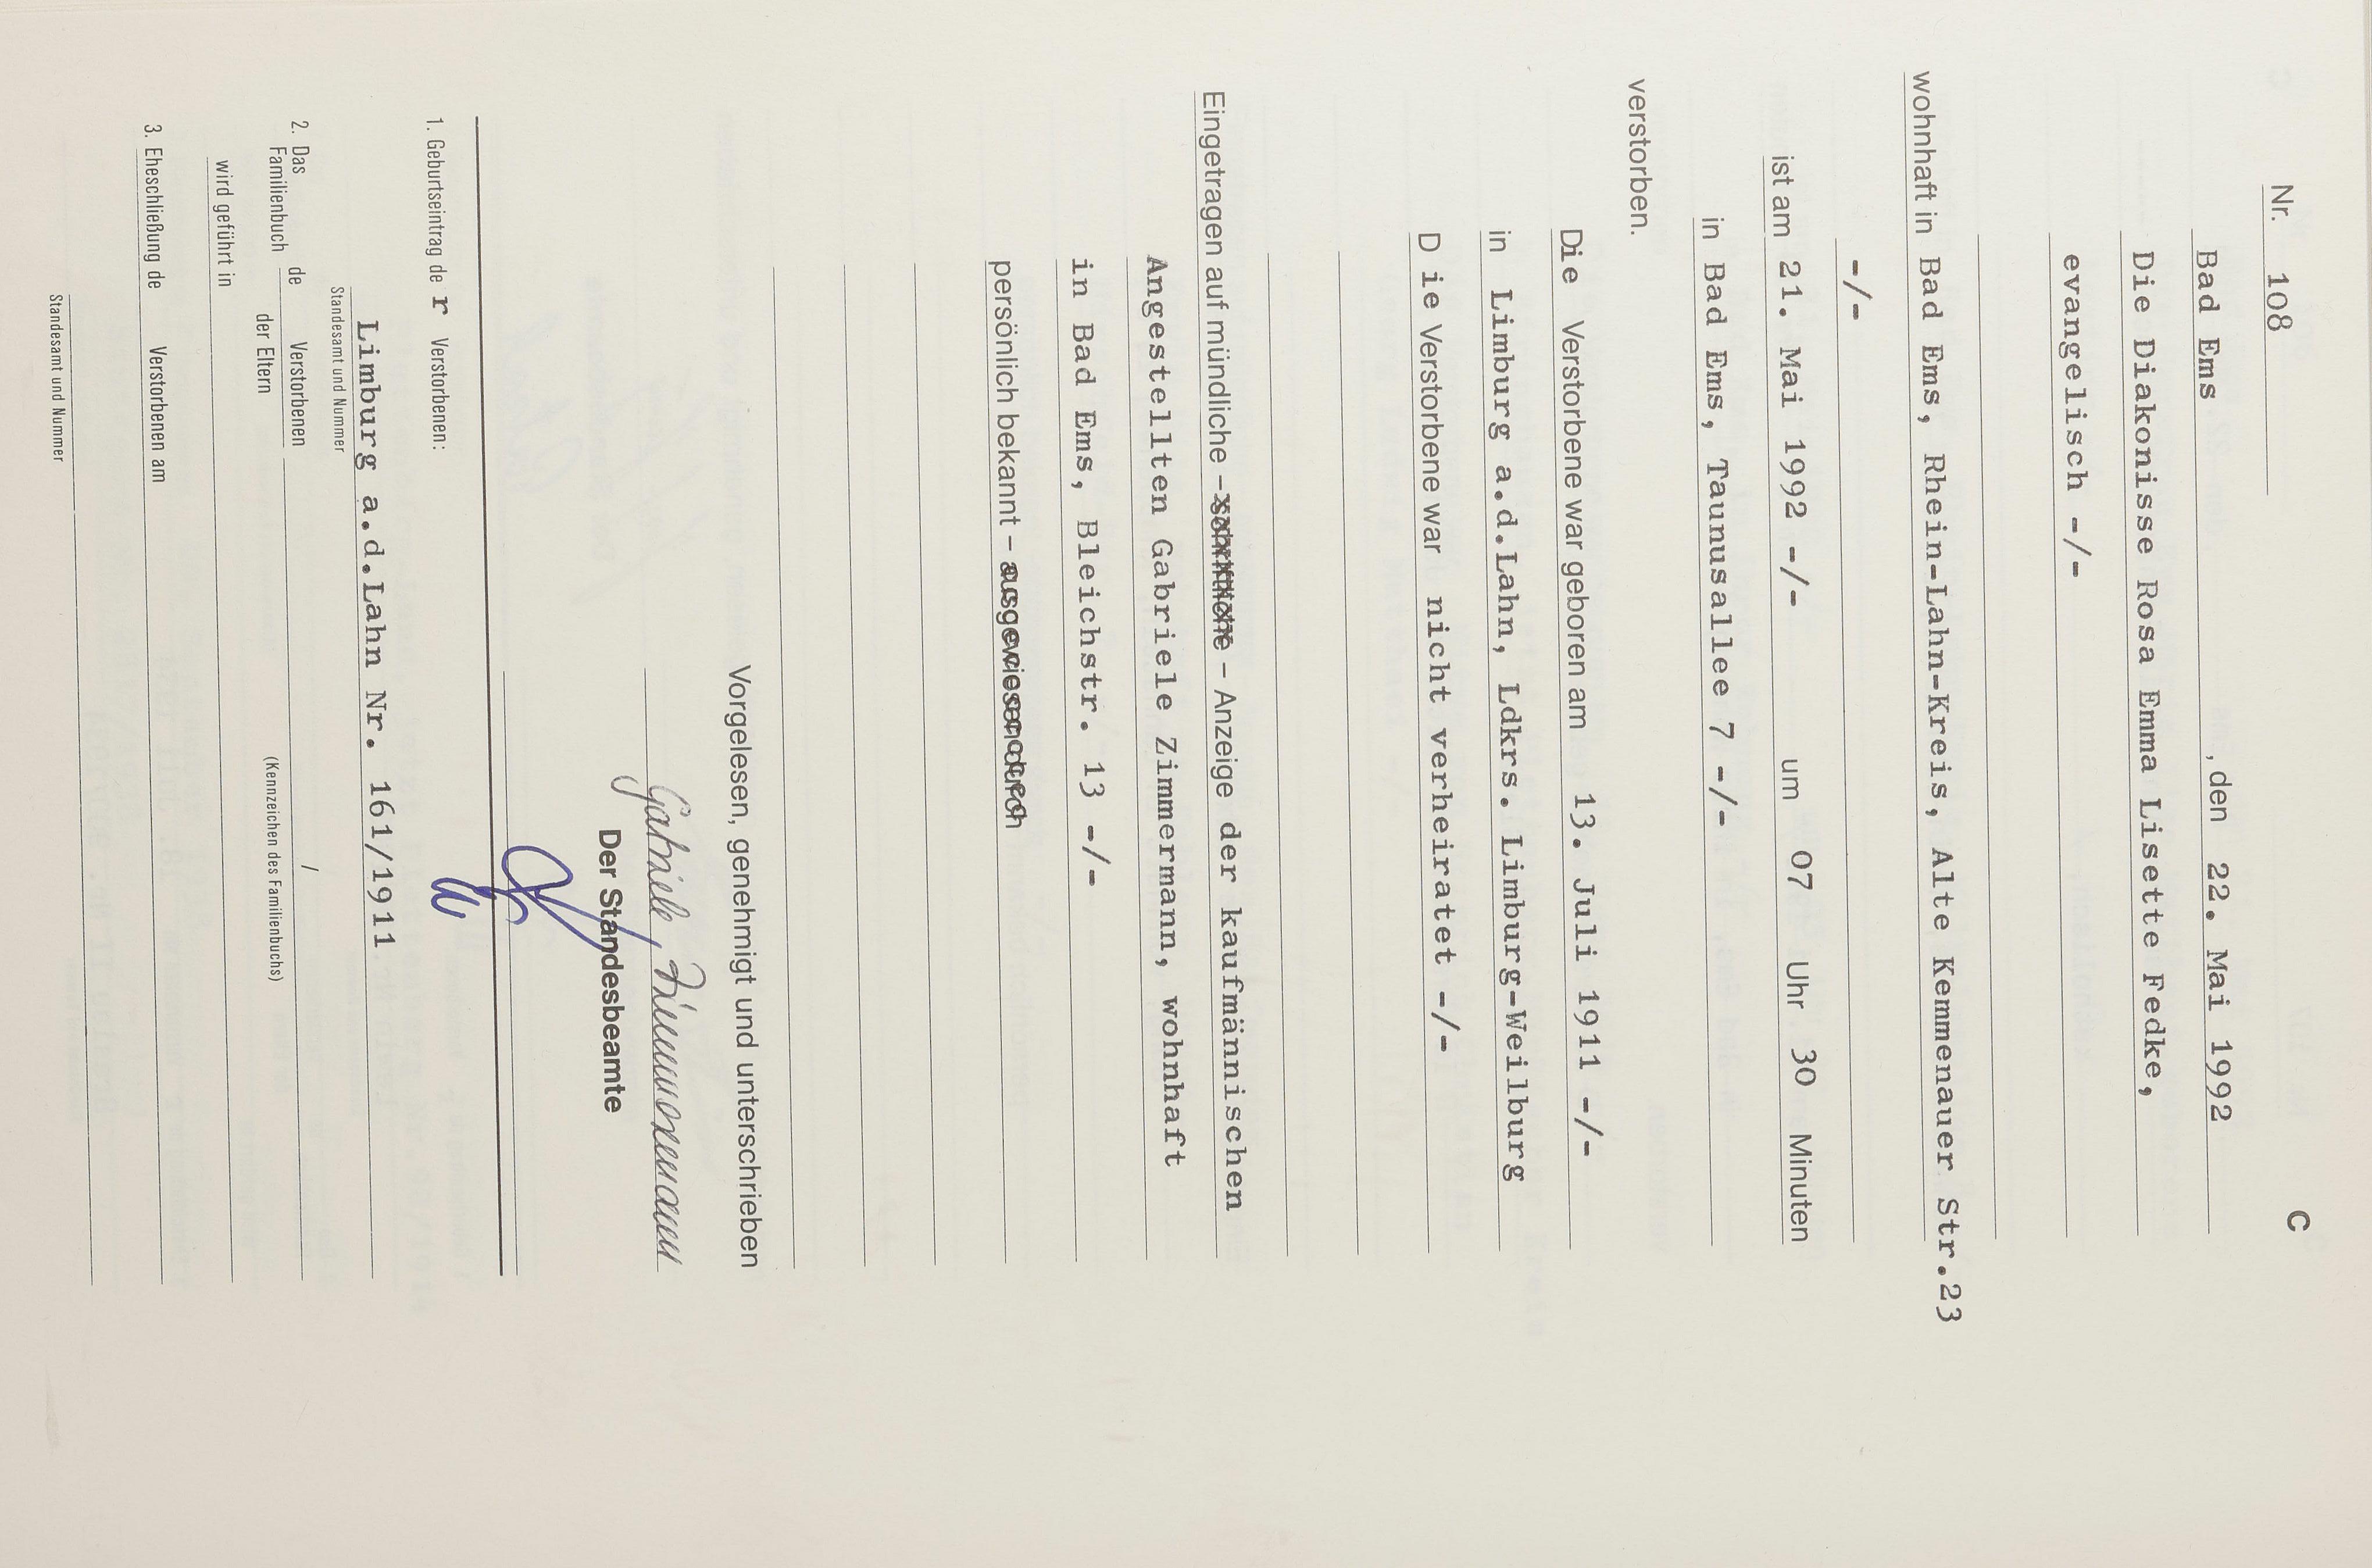 C
Nr. 108
Bad Ems , den 22. Mai 1992
Die Diakonisse Rosa Emma Lisette Fedke,
evangelisch -/-
wohnhaft in Bad Ems, Rhein-Lahn-Kreis, Alte Kemmenauer Str.23
-/-
ist am 21. Mai 1992 -/- um 07 Uhr 30 Minuten
in Bad Ems, Taunusallee 7 -/-
verstorben.
Die Verstorbene war geboren am 13. Juli 1911 -/-
in Limburg a.d.Lahn, Ldkrs. Limburg-Weilburg
D ie Verstorbene war nicht verheiratet -/-
Eingetragen auf mündliche – schriftliche – Anzeige der kaufmännischen
Angestellten Gabriele Zimmermann, wohnhaft
in Bad Ems, Bleichstr. 13 -/-
persönlich bekannt – ausgewiesen durch
Vorgelesen, genehmigt und unterschrieben
Gabriele Zimmermann
Der Standesbeamte
1. Geburtseintrag de r Verstorbenen:
Limburg a.d.Lahn Nr. 161/1911
Standesamt und Nummer
2. Das Familienbuch de Verstorbenen /
der Eltern (Kennzeichen des Familienbuchs)
wird geführt in
3. Eheschließung de Verstorbenen am
Standesamt und Nummer